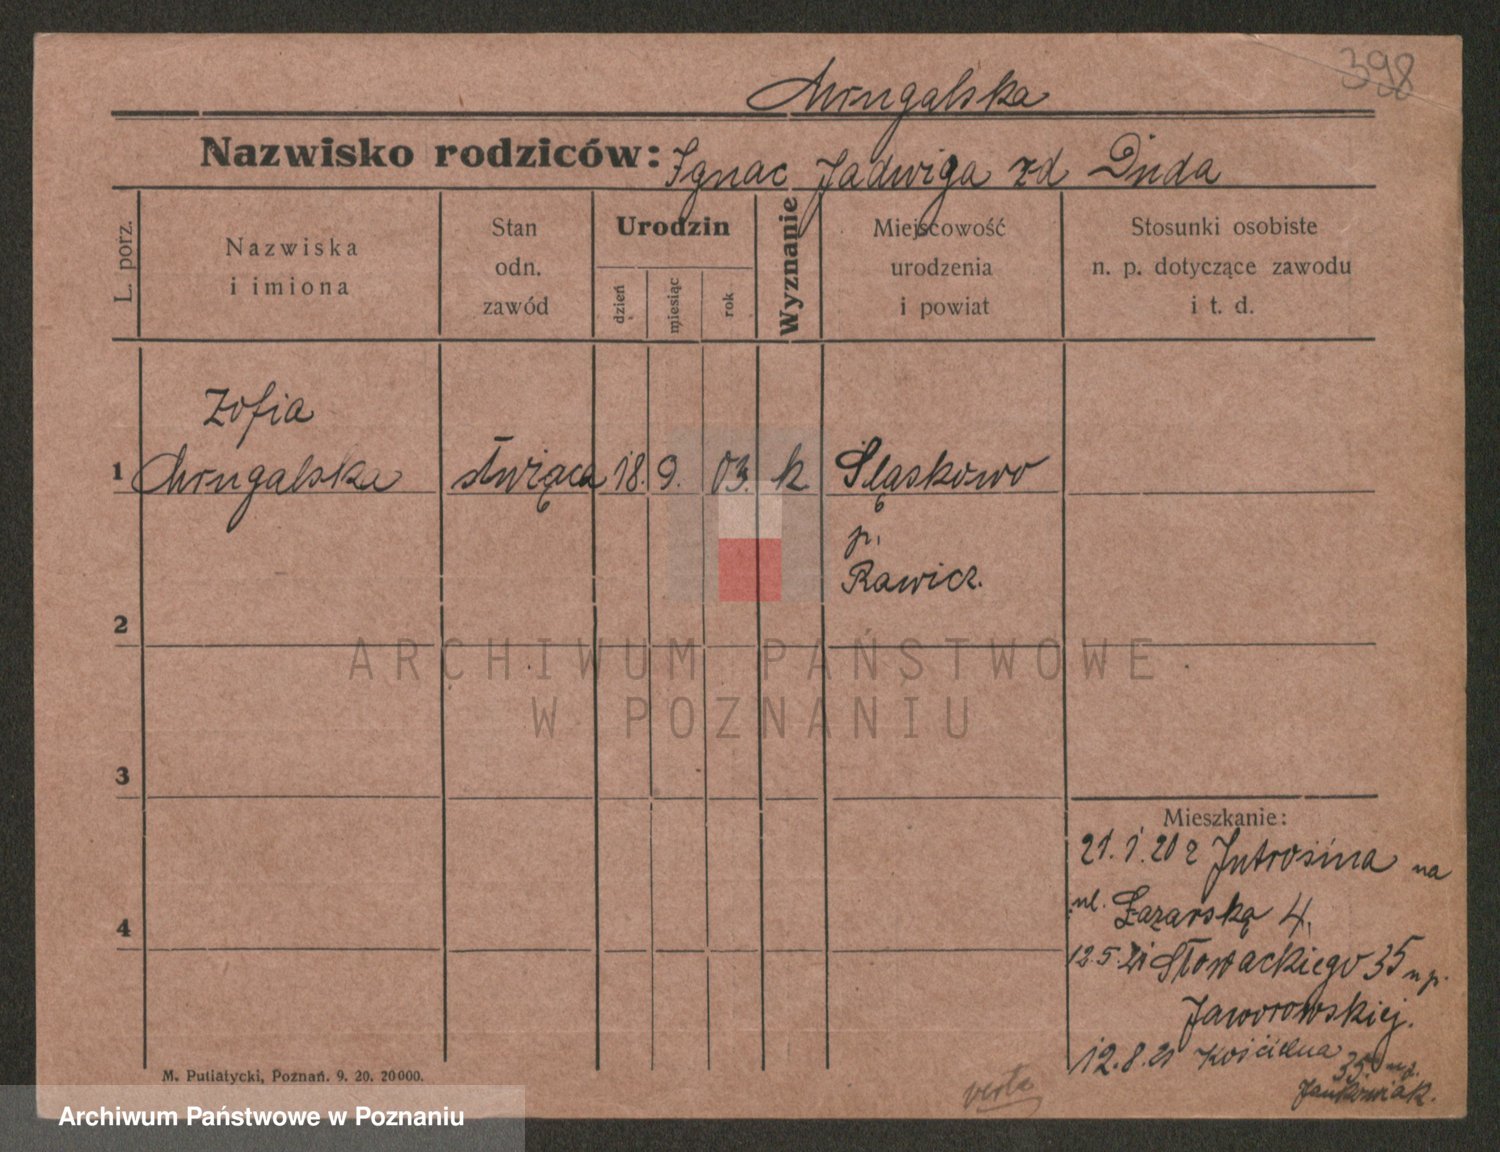 398
Smugalska
Nazwisko rodziców: Ignac Jadwiga zd Duda
L. porz.
Nazwiska
i imiona
Stan
odn.
zawód
Urodzin
dzień
miesiąc
rok
Wyznanie
Miejscowość
urodzenia
i powiat
Stosunki osobiste
n. p. dotyczące zawodu
i t. d.
Zofia
1 Smugalska służąca 18. 9. 03. k Śląskowo
p.
Rawicz.
2
3
4
Mieszkanie:
21.1.20 z Jutrosina na
ul. Łazarską 4,
12.5.21 Słowackiego 35 u p.
Jaworowskiej.
12.8.21 Kościelna 35. u p.
Jankowiak.
verte
M. Putiatycki, Poznań. 9. 20. 20000.
ARCHIWUM PAŃSTWOWE
W POZNANIU
Archiwum Państwowe w Poznaniu